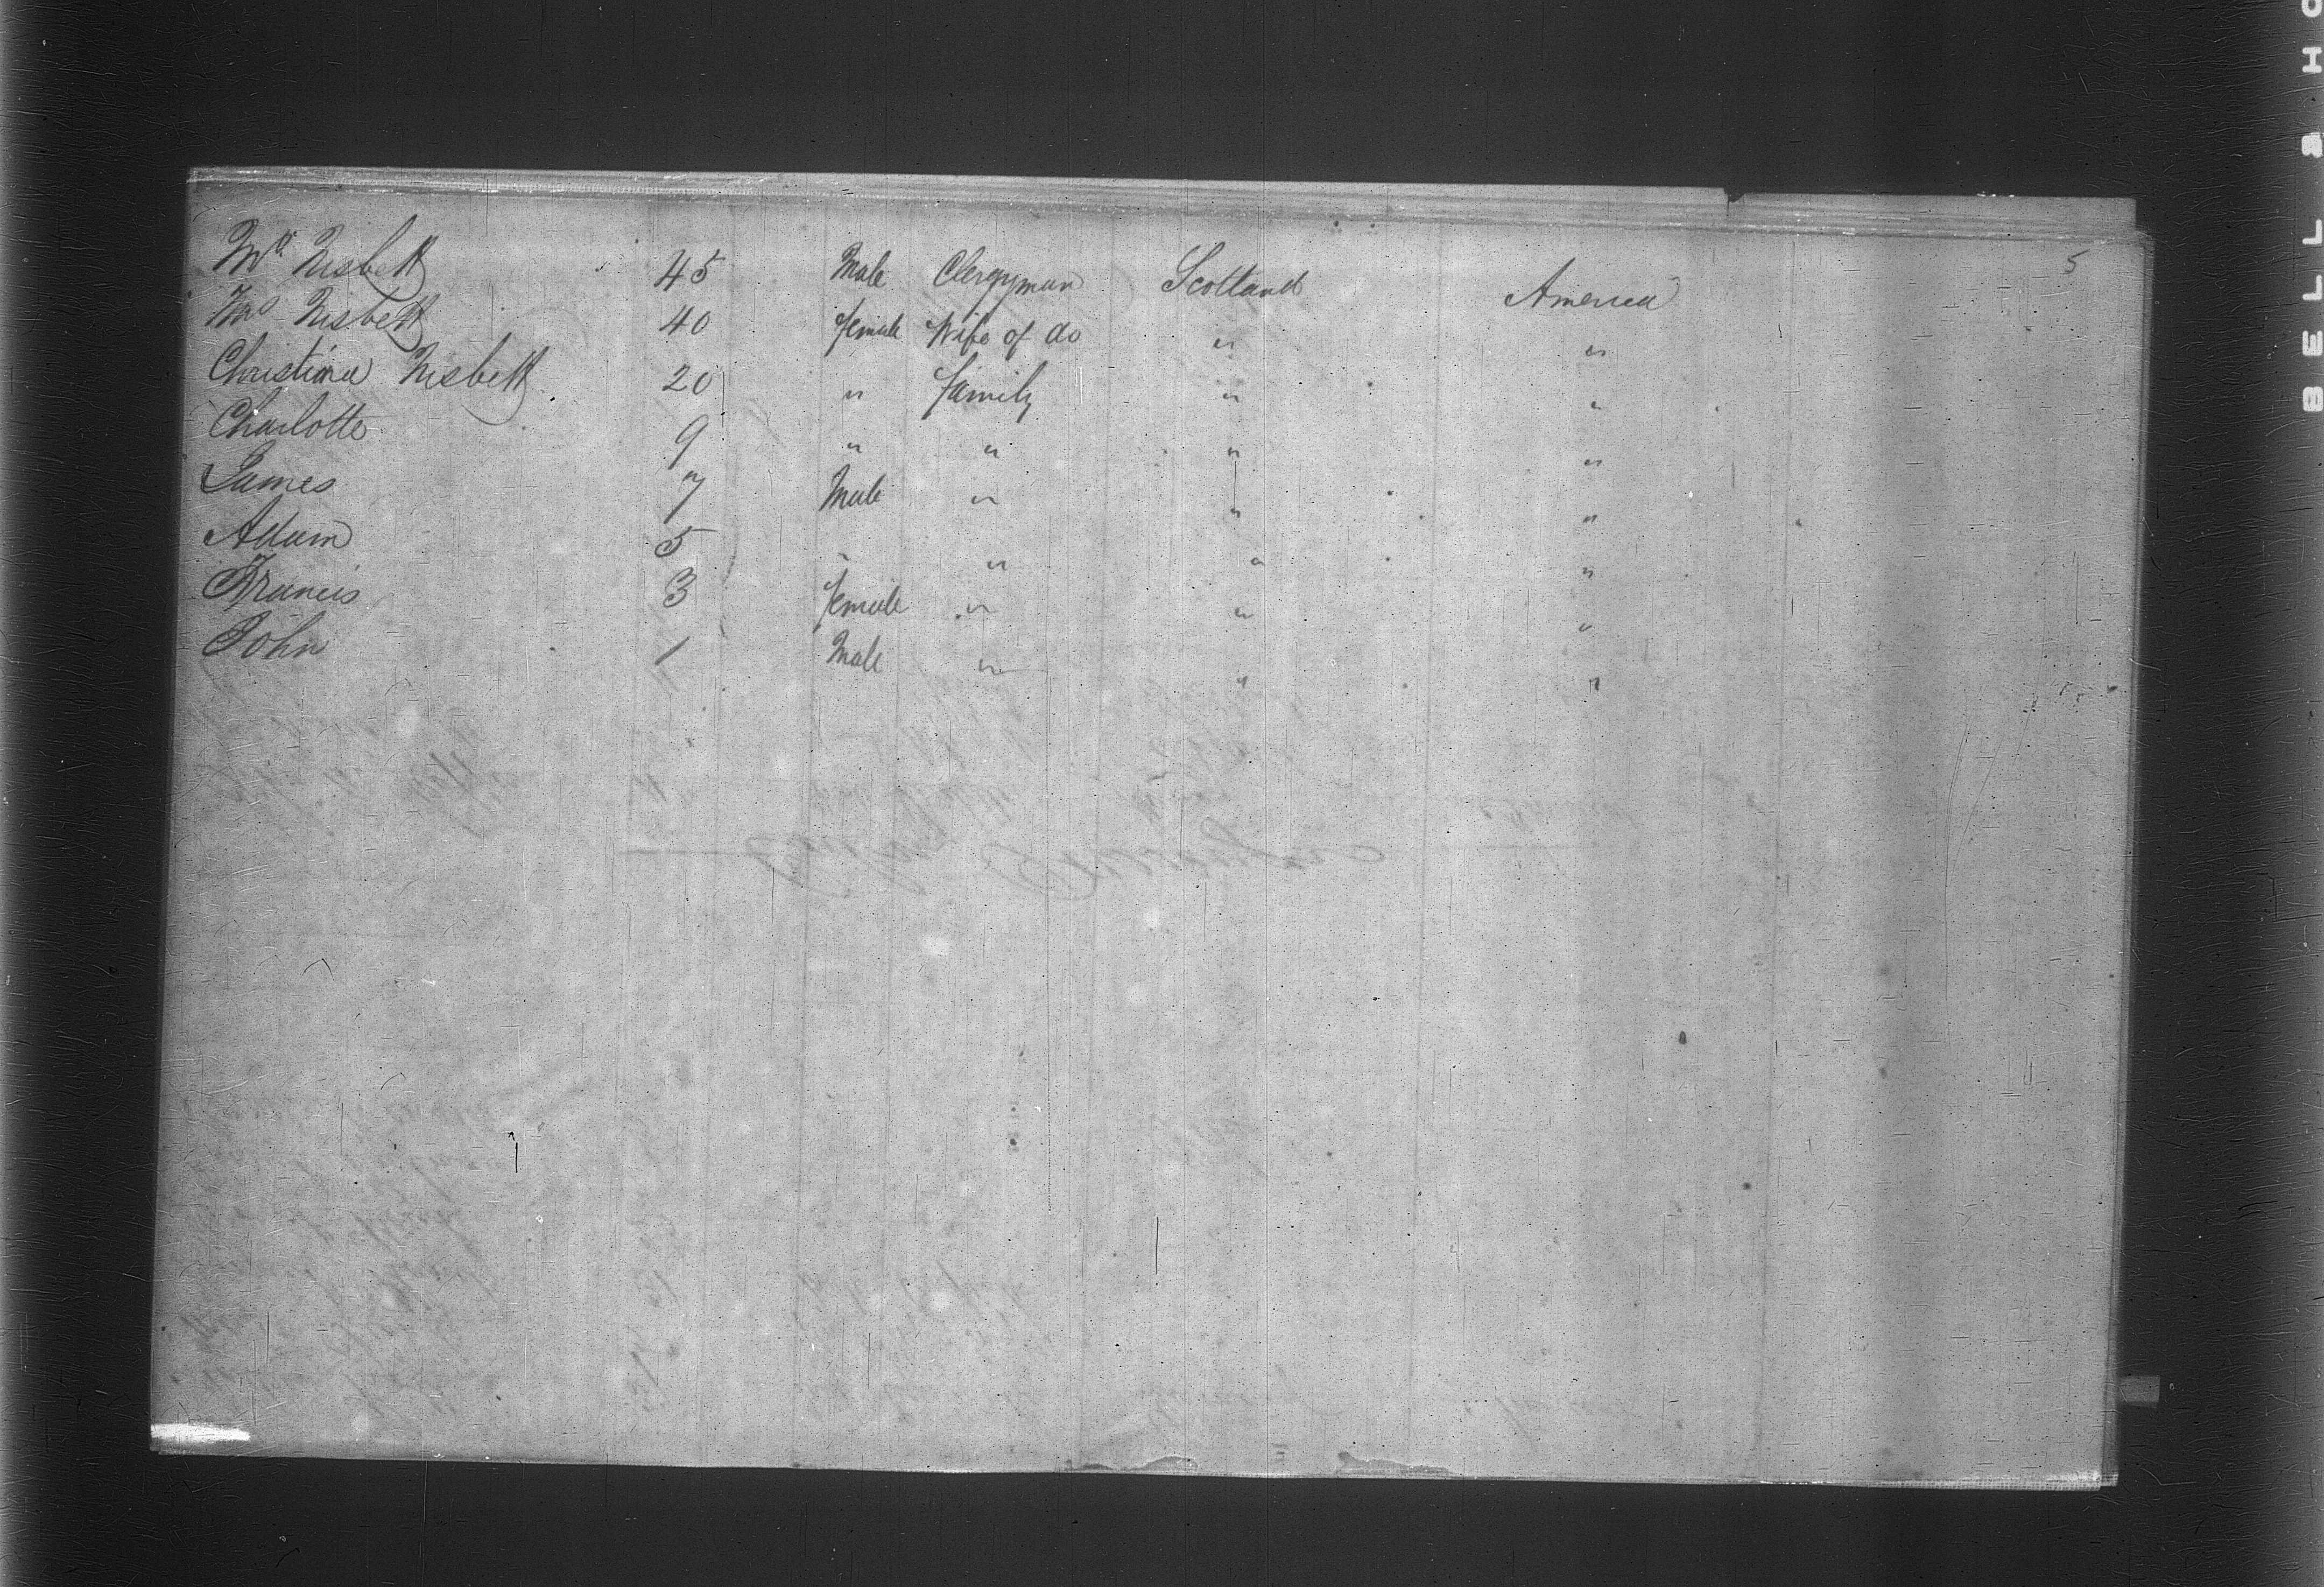 Mr Nisbett 45 Male Clergyman Scotland America 5
Mrs Nisbett 40 female Wife of do " "
Christina Nisbett 20 " family " "
Charlotte 9 " " " "
James 7 Male " " "
Adam 5 " " " "
Francis 3 female " " "
John 1 Male " " "
BELL & HO